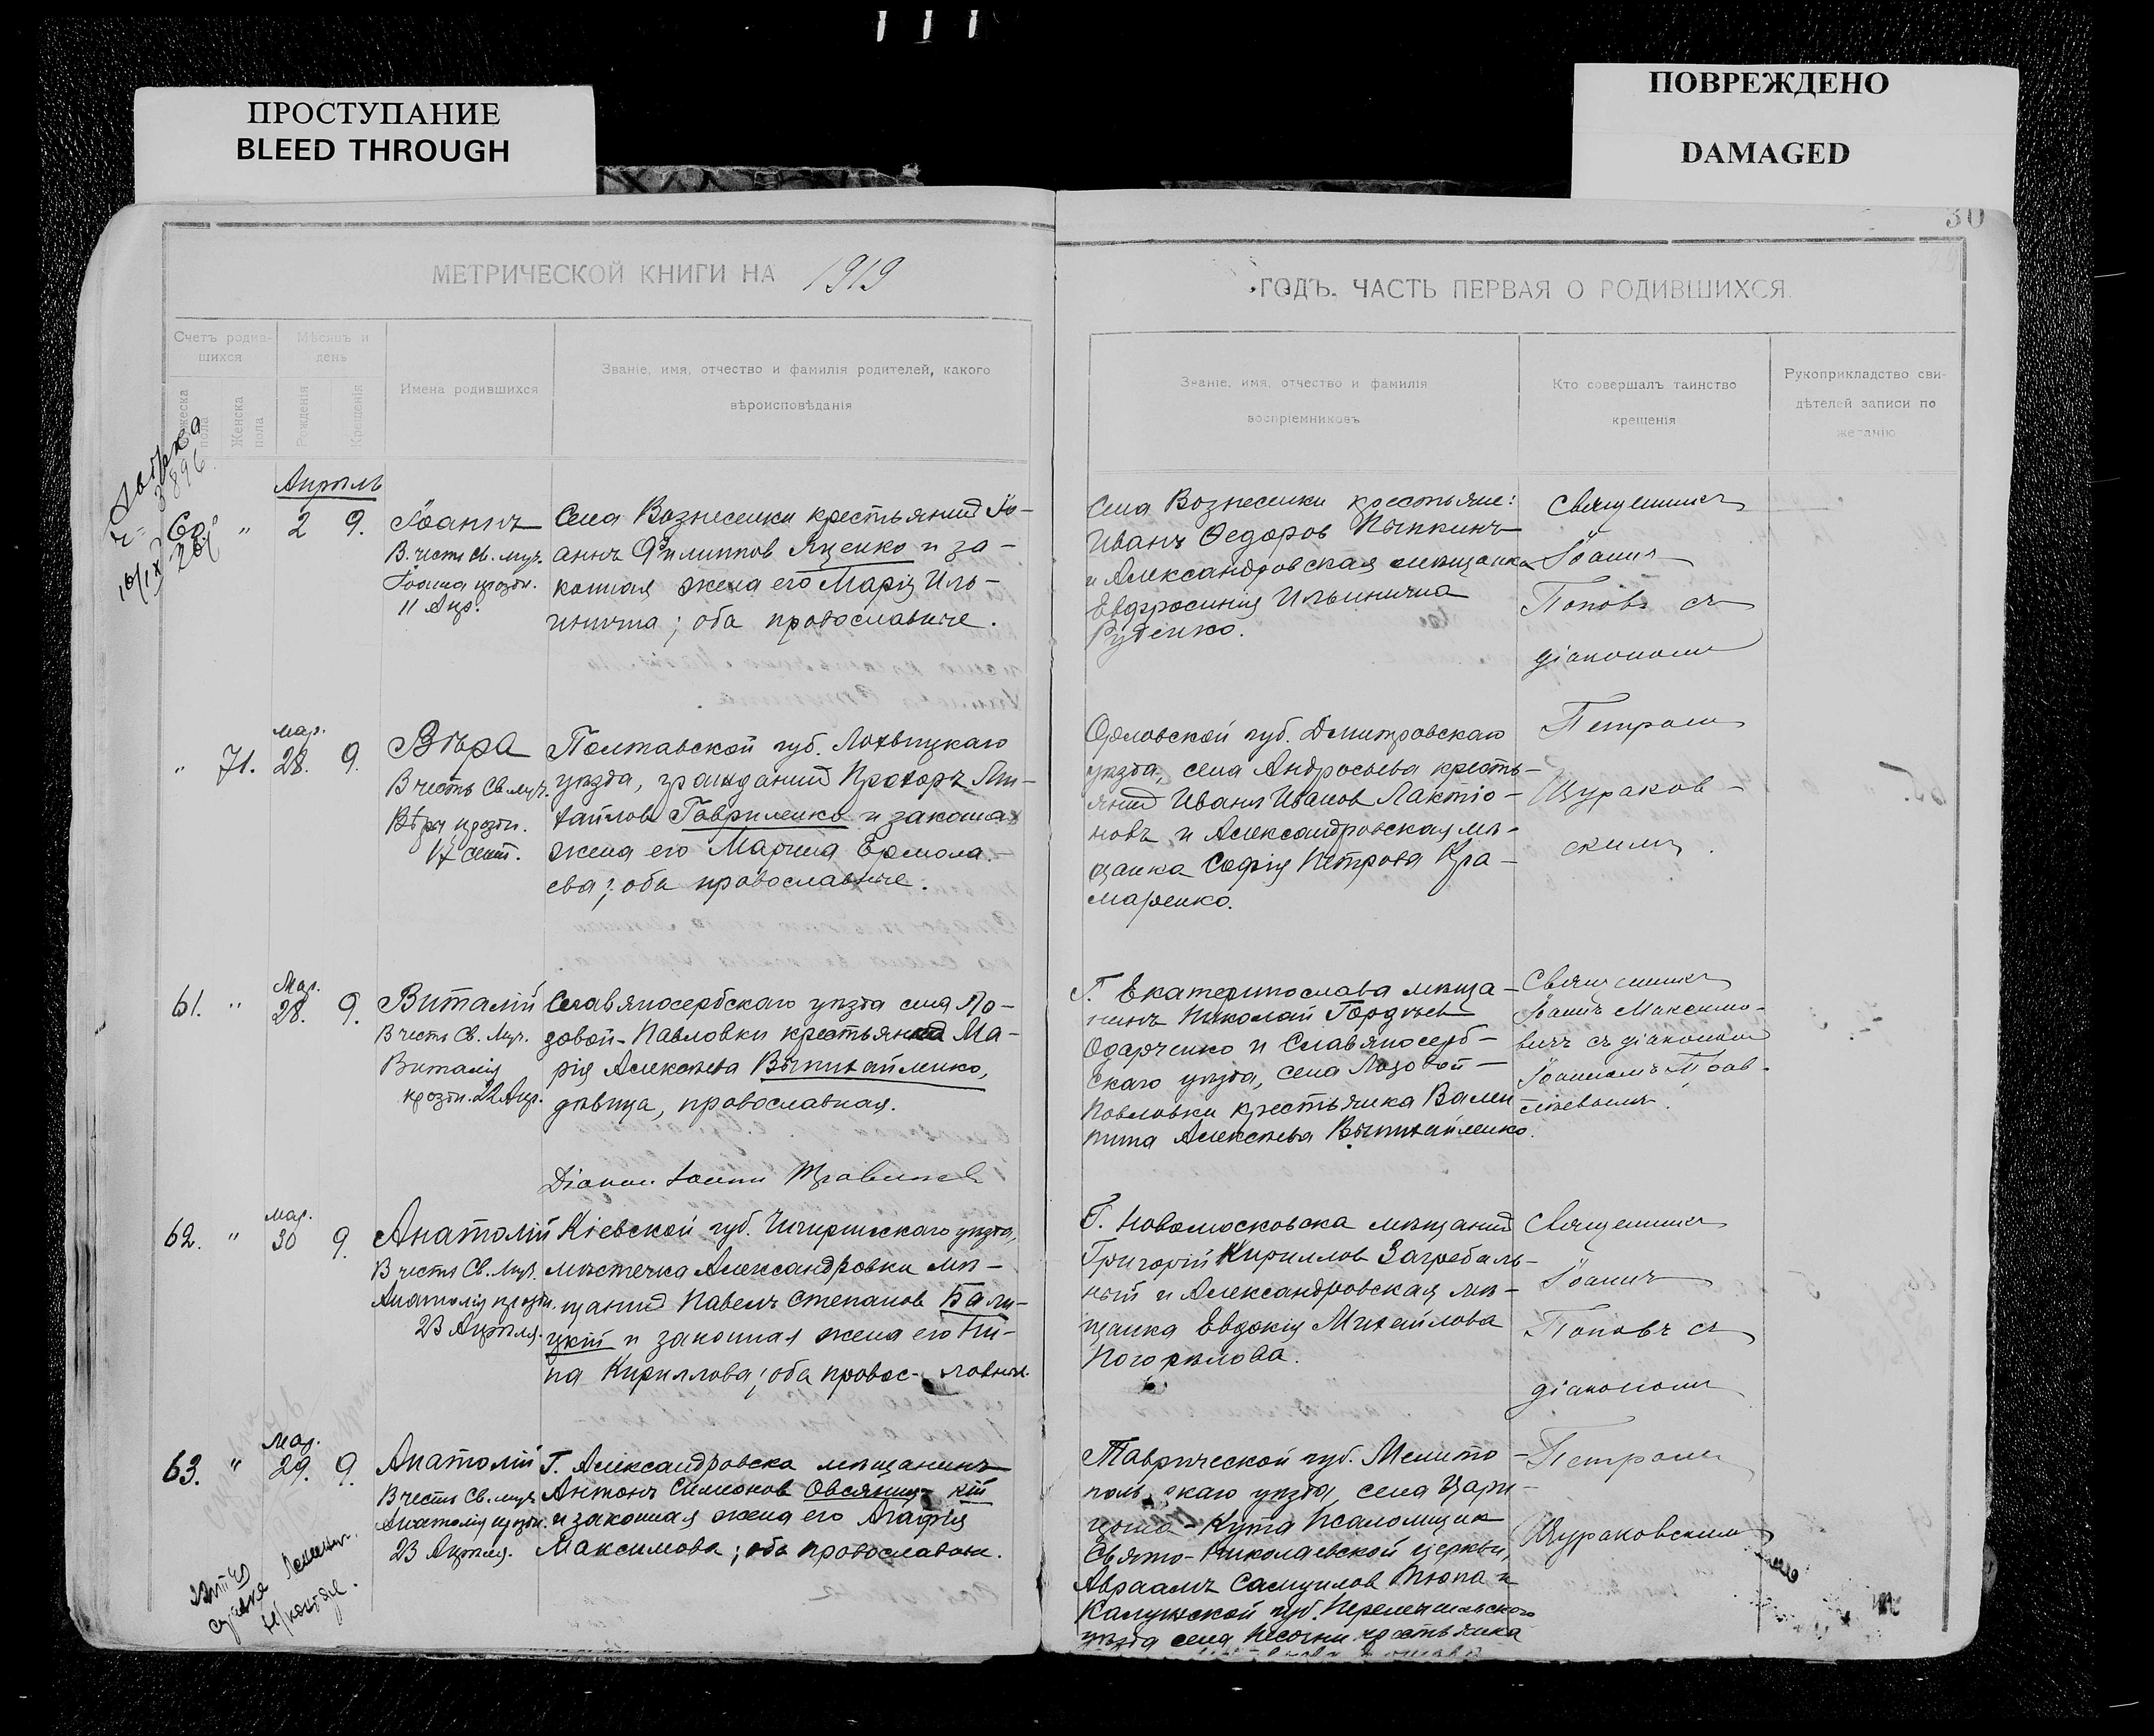 ПРОСТУПАНИЕ
BLEED THROUGH
ПОВРЕЖДЕНО
DAMAGED
30
МЕТРИЧЕСКОЙ КНИГИ НА 1919
ГОДЪ. ЧАСТЬ ПЕРВАЯ О РОДИВШИХСЯ.
Счетъ родив-
шихся
Мѣсяцъ и
день
Женска
пола
Рожденія
Крещенія
Имена родившихся
Званіе, имя, отчество и фамилія родителей, какого
вѣроисповѣданія
Званіе, имя, отчество и фамилія
воспріемниковъ
Кто совершалъ таинство
крещенія
Рукоприкладство сви-
дѣтелей записи по
желанію
Апрѣль
60. " 2 9.
Іоаннъ
В честь Св. муч.
Іоанна праздн.
11 Апр.
Села Вознесенки крестьянинъ Іо-
аннъ Филиппов Яценко и за-
конная жена его Марія Иль-
инична; оба православные.
Села Вознесенки крестьяне:
Иванъ Ѳедоров
и Александровская мѣщанка
Евфросинія Ильинична
Руденко.
Священникъ
Іоаннъ
Поповъ съ
діакономъ
Петромъ
Щураков-
скимъ.
" 71. Мар. 28. 9.
Вѣра
В честь Св. муч.
Вѣры праздн.
17 сент.
Полтавской губ. Лохвицкаго
уѣзда, гражданинъ Прохоръ Ми-
хайлов Гавриленко и законная
жена его Марина Ермола-
ева; оба православные.
Орловской губ. Дмитровскаго
уѣзда, села Андросьева кресть-
янинъ Иванъ Иванов Лактіо-
новъ и Александровская мѣ-
щанка Софія Петрова Кра-
маренко.
61. " Мар. 28. 9.
Виталій
В честь Св. Муч.
Виталія
празdн. 22 Апр.
Славяносербскаго уѣзда села Ло-
зовой-Павловки крестьянка Ма-
рія Алексѣева Выпихайленко,
дѣвица, православная.
Діакон Іоанн
Г. Екатеринослава мѣща-
нинъ Николай Гордѣев
Одарченко и Славяносерб-
скаго уѣзда, села Лозовой
Павловки крестьянка Вален
тина Алексѣева Выпихайленко.
Священникъ
Іоаннъ Максимо-
вичъ съ діакономъ
62. " Мар. 30 9.
Анатолій
В честь Св. Муч.
Анатолія праздн.
23 Апрѣля.
Кіевской губ. Чигиринскаго уѣзда,
мѣстечка Александровки мѣ-
щанинъ Павелъ Степанов Бали-
цкій и законная жена его Ни-
на Кириллова; оба правос- лавные.
Г. Новомосковска мѣщанинъ
Григорій Кириллов Загребель-
ный и Александровская мѣ-
щанка Евдокія Михайлова
Погорѣлова.
Священникъ
Іоаннъ
Поповъ съ
діакономъ
Петромъ
Щураковскимъ
63. " Мар. 29. 9.
Анатолій
В честь Св. муч.
Анатолія праздн.
23 Апрѣля.
Г. Александровска мѣщанинъ
Антонъ Симеонов Овсяниц- кій
и законная жена его Агафія
Максимова; оба православные.
Таврической губ. Мелито-
поль скаго уѣзда, села Цари-
цына-Кута псаломщик
Свято-Николаевской церкви,
Авраамъ Самуилов Тюпа и
Калужской губ. Перемышльскаго
уѣзда села Песочни крестьянка